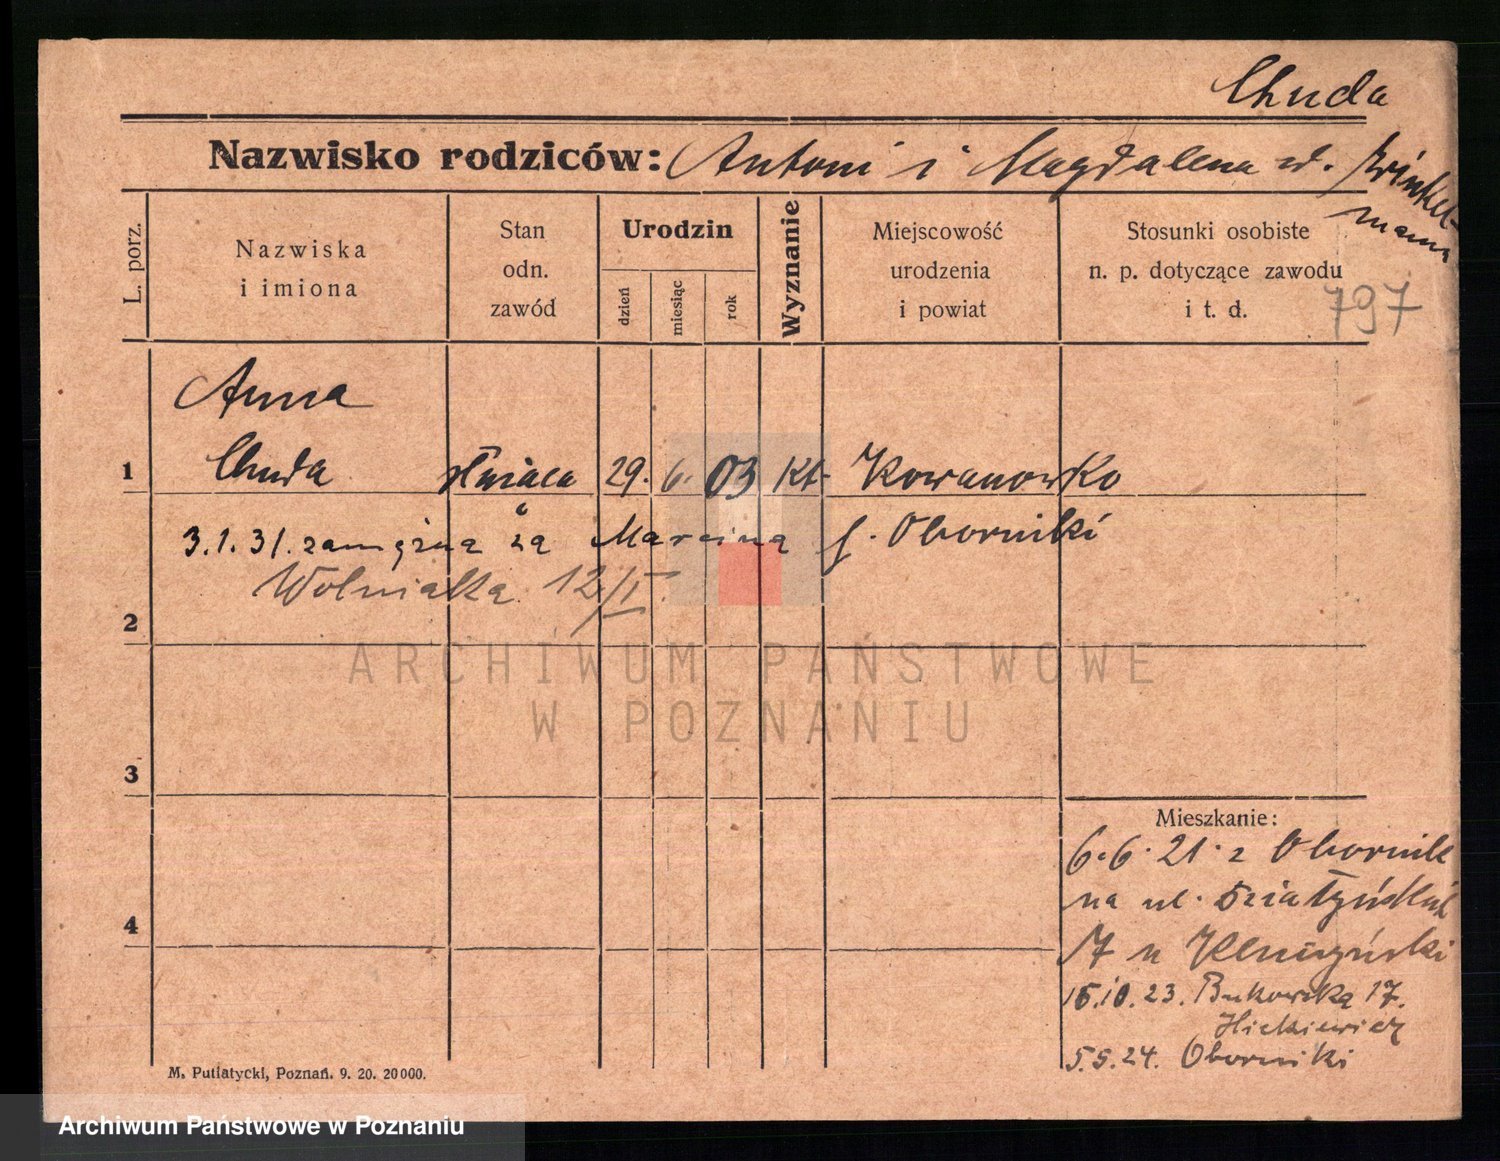 Chuda
Nazwisko rodziców: Antoni i Magdalena z d. Winkel-
mann
L. porz.
Nazwiska
i imiona
Stan
odn.
zawód
Urodzin
dzień
miesiąc
rok
Wyznanie
Miejscowość
urodzenia
i powiat
Stosunki osobiste
n. p. dotyczące zawodu
i t. d.
797
Anna
1 Chuda służąca 29. 6. 03 kt. Kowanowko
3.1.31. zamężna za Marcina p. Oborniki
Wolniaka 12/I.
2
ARCHIWUM PAŃSTWOWE
W POZNANIU
3
Mieszkanie:
6.6.21. z Obornik
na ul. Działyńskich
4
7 u
15.10.23. Bukowska 17.
5.5.24. Oborniki
M. Putiatycki, Poznań. 9. 20. 20000.
Archiwum Państwowe w Poznaniu